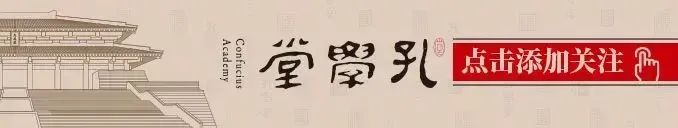 Confucius
Academy
堂學孔
点击添加关注